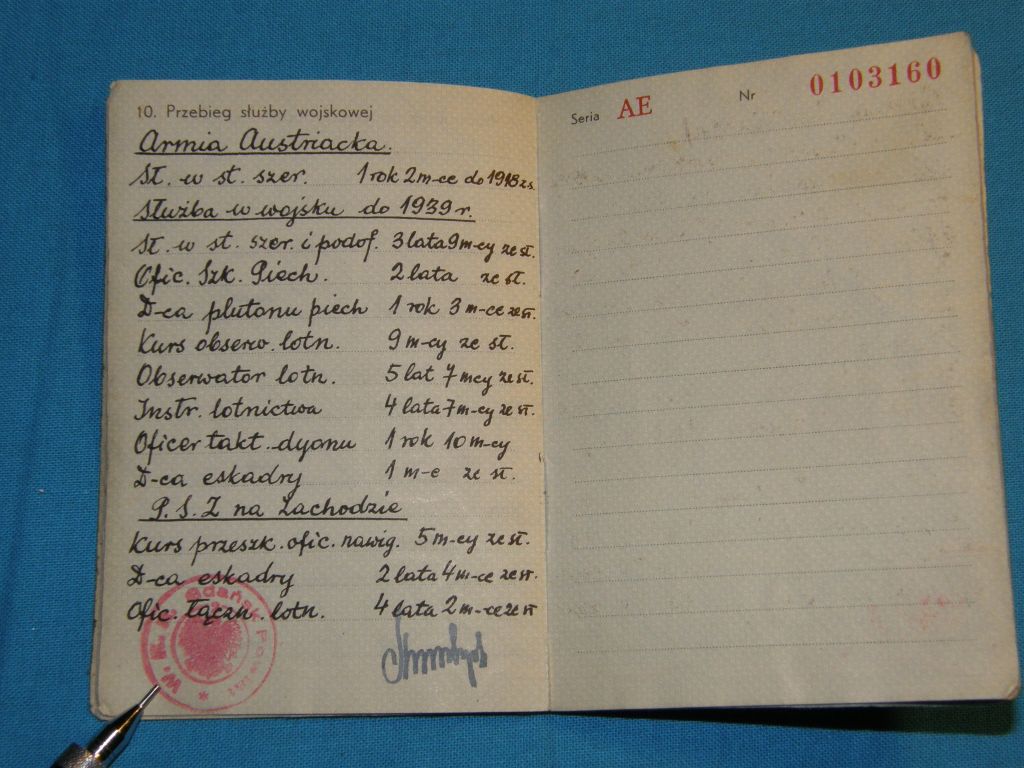 10. Przebieg służby wojskowej
Armia Austriacka.
Sł. w st. szer. 1 rok 2 m-ce do 1918 zs.
Służba w wojsku do 1939 r.
Sł. w st. szer. i podof. 3 lata 9 m-cy ze st.
Ofic. Szk. Piech. 2 lata ze st.
D-ca plutonu piech 1 rok 3 m-ce ze st.
Kurs obserw. lotn. 9 m-cy ze st.
Obserwator lotn. 5 lat 7 mcy ze st.
Instr. lotnictwa 4 lata 7 m-cy ze st.
Oficer takt. dyonu 1 rok 10 m-cy
D-ca eskadry 1 m-c ze st.
P.S.Z na Zachodzie
Kurs przeszk. ofic. nawig. 5 m-cy ze st.
D-ca eskadry 2 lata 4 m-ce ze st.
Ofic. łączn. lotn. 4 lata 2 m-ce ze st
W.K.R. Gdańsk Powiat
Seria AE Nr 0103160